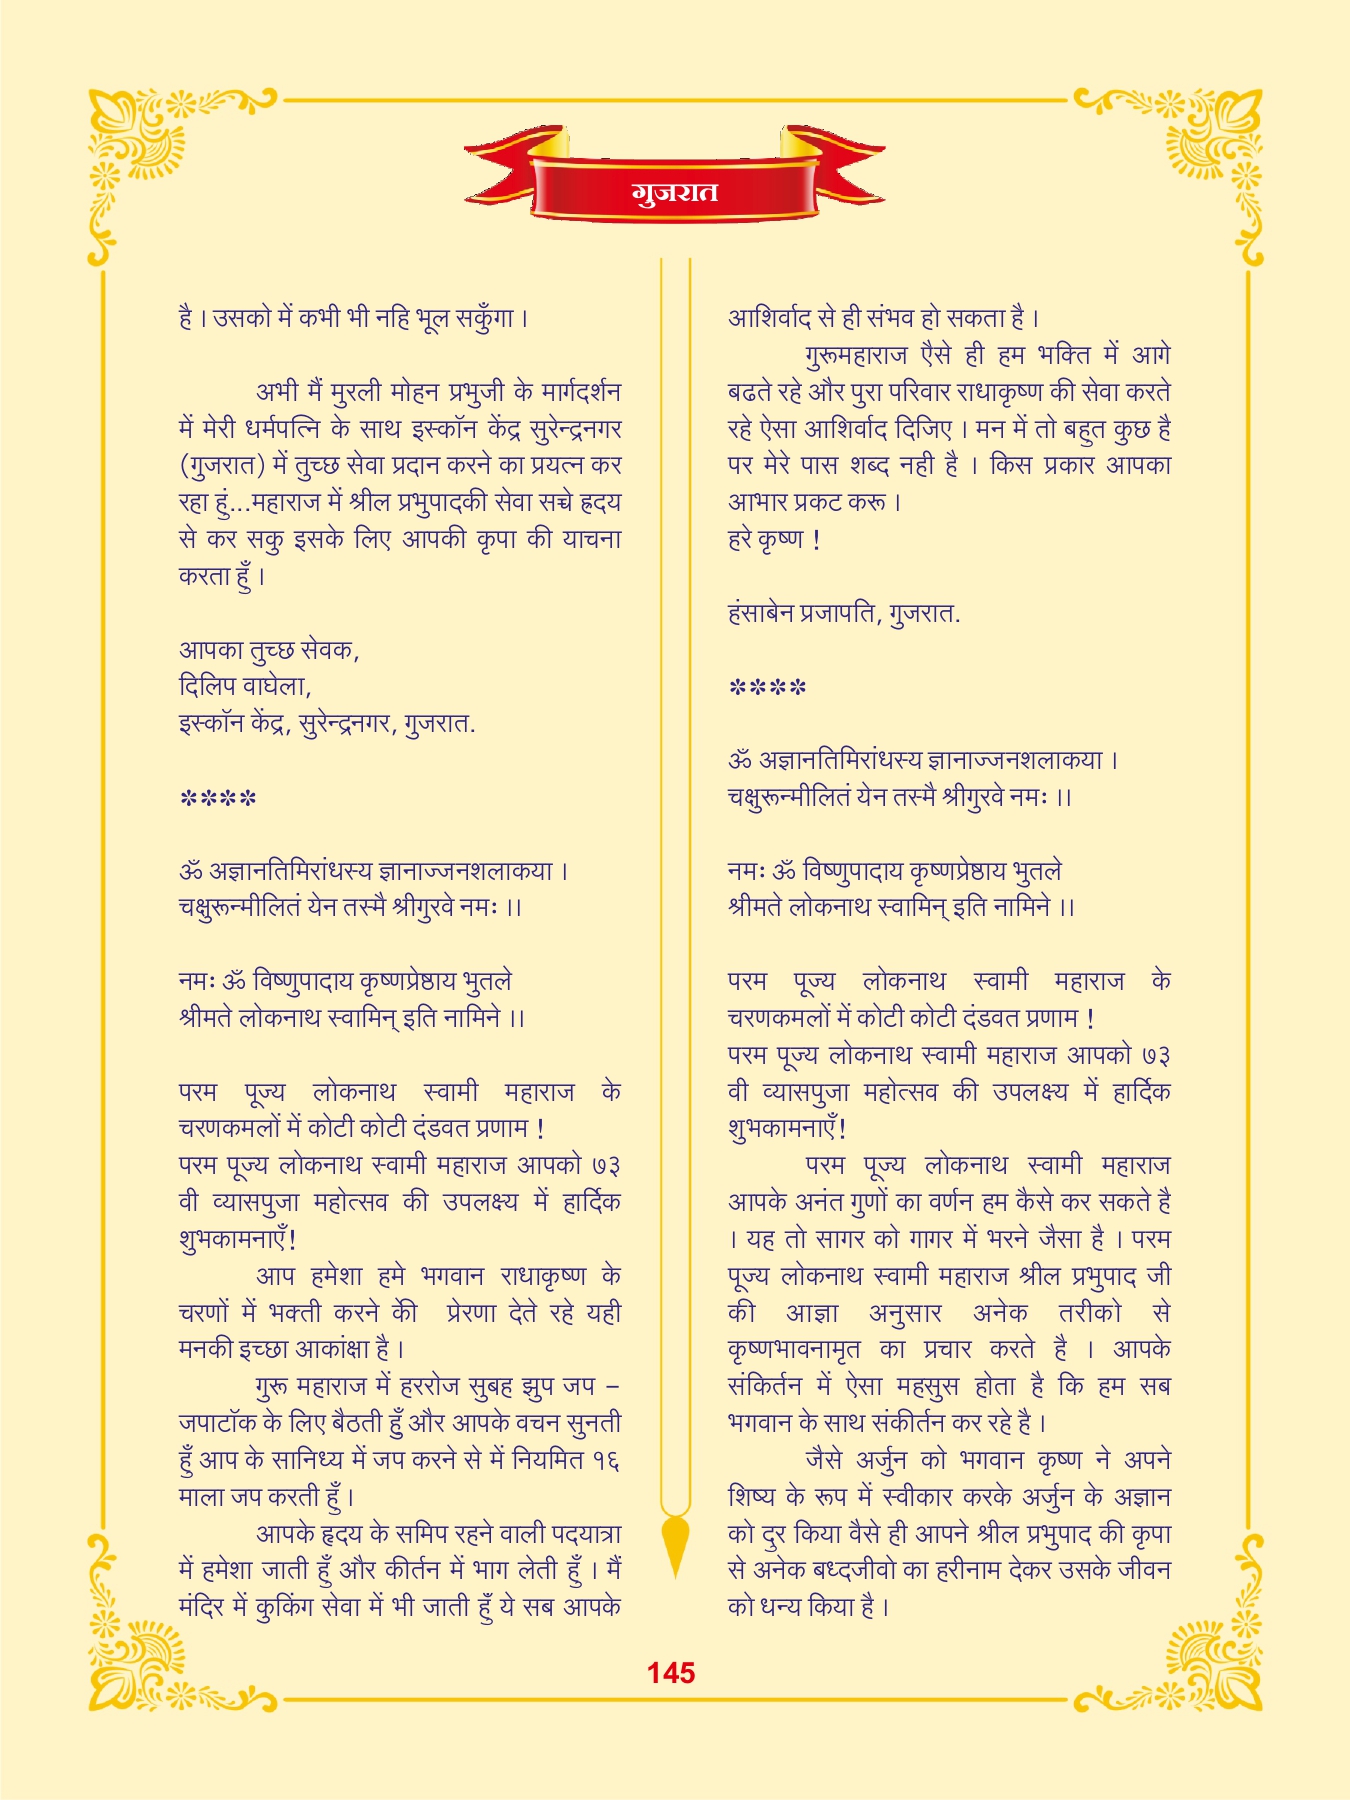 गुजरात
है । उसको में कभी भी नहि भूल सकुँगा ।
अभी मैं मुरली मोहन प्रभुजी के मार्गदर्शन
में मेरी धर्मपत्नि के साथ इस्कॉन केंद्र सुरेन्द्रनगर
(गुजरात) में तुच्छ सेवा प्रदान करने का प्रयत्न कर
रहा हुं...महाराज में श्रील प्रभुपादकी सेवा सच्चे ह्रदय
से कर सकु इसके लिए आपकी कृपा की याचना
करता हुँ ।
आपका तुच्छ सेवक,
दिलिप वाघेला,
इस्कॉन केंद्र, सुरेन्द्रनगर, गुजरात.
****
ॐ अज्ञानतिमिरांधस्य ज्ञानाज्जनशलाकया ।
चक्षुरून्मीलितं येन तस्मै श्रीगुरवे नमः ।।
नमः ॐ विष्णुपादाय कृष्णप्रेष्ठाय भुतले
श्रीमते लोकनाथ स्वामिन् इति नामिने ।।
परम पूज्य लोकनाथ स्वामी महाराज के
चरणकमलों में कोटी कोटी दंडवत प्रणाम !
परम पूज्य लोकनाथ स्वामी महाराज आपको ७३
वी व्यासपुजा महोत्सव की उपलक्ष्य में हार्दिक
शुभकामनाएँ!
आप हमेशा हमे भगवान राधाकृष्ण के
चरणों में भक्ती करने केी प्रेरणा देते रहे यही
मनकी इच्छा आकांक्षा है ।
गुरू महाराज में हररोज सुबह झुप जप –
जपाटॉक के लिए बैठती हुँ और आपके वचन सुनती
हुँ आप के सानिध्य में जप करने से में नियमित १६
माला जप करती हुँ ।
आपके हृदय के समिप रहने वाली पदयात्रा
में हमेशा जाती हुँ और कीर्तन में भाग लेती हुँ । मैं
मंदिर में कुकिंग सेवा में भी जाती हुँ ये सब आपके
आशिर्वाद से ही संभव हो सकता है ।
गुरूमहाराज एैसे ही हम भक्ति में आगे
बढते रहे और पुरा परिवार राधाकृष्ण की सेवा करते
रहे ऐसा आशिर्वाद दिजिए । मन में तो बहुत कुछ है
पर मेरे पास शब्द नही है । किस प्रकार आपका
आभार प्रकट करू ।
हरे कृष्ण !
हंसाबेन प्रजापति, गुजरात.
****
ॐ अज्ञानतिमिरांधस्य ज्ञानाज्जनशलाकया ।
चक्षुरून्मीलितं येन तस्मै श्रीगुरवे नमः ।।
नमः ॐ विष्णुपादाय कृष्णप्रेष्ठाय भुतले
श्रीमते लोकनाथ स्वामिन् इति नामिने ।।
परम पूज्य लोकनाथ स्वामी महाराज के
चरणकमलों में कोटी कोटी दंडवत प्रणाम !
परम पूज्य लोकनाथ स्वामी महाराज आपको ७३
वी व्यासपुजा महोत्सव की उपलक्ष्य में हार्दिक
शुभकामनाएँ!
परम पूज्य लोकनाथ स्वामी महाराज
आपके अनंत गुणों का वर्णन हम कैसे कर सकते है
। यह तो सागर को गागर में भरने जैसा है । परम
पूज्य लोकनाथ स्वामी महाराज श्रील प्रभुपाद जी
की आज्ञा अनुसार अनेक तरीको से
कृष्णभावनामृत का प्रचार करते है । आपके
संकिर्तन में ऐसा महसुस होता है कि हम सब
भगवान के साथ संकीर्तन कर रहे है ।
जैसे अर्जुन को भगवान कृष्ण ने अपने
शिष्य के रूप में स्वीकार करके अर्जुन के अज्ञान
को दुर किया वैसे ही आपने श्रील प्रभुपाद की कृपा
से अनेक बध्दजीवो का हरीनाम देकर उसके जीवन
को धन्य किया है ।
145